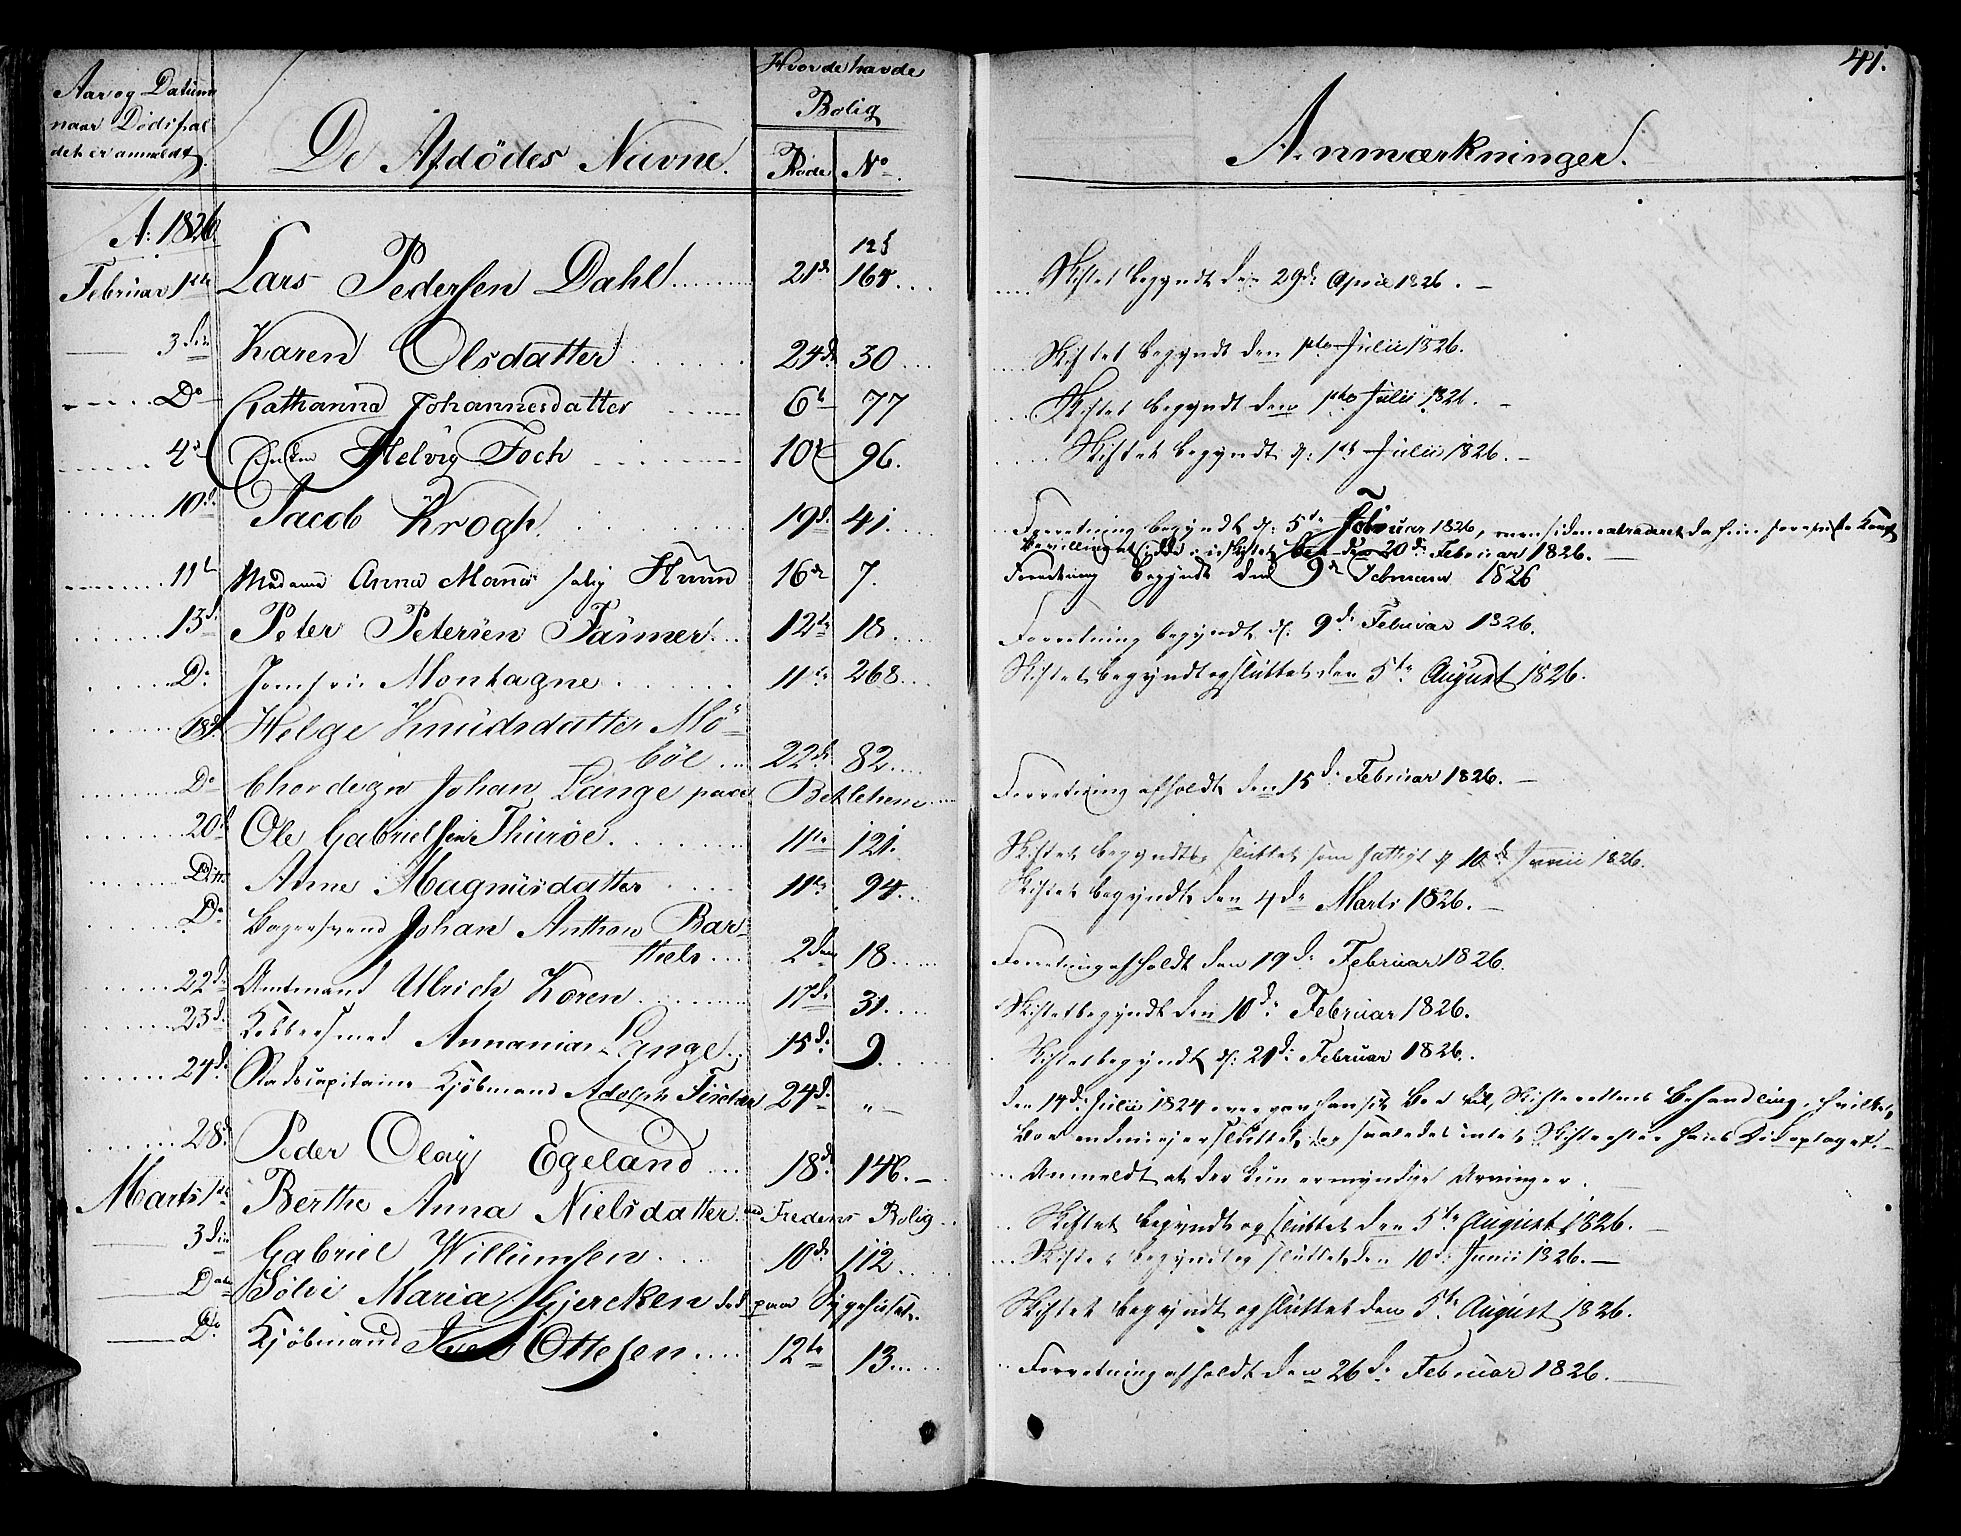 41.
Aar og Datum
naar Dödsfal
det er anmeldt.
De Afdödes Navne.
Hvor de havde
Bolig
Rode No
Anmærkninger.
A: 1826
Februar 1ste Lars Pedersen Dahl 21de 164 Skiftet begyndt den 29de April 1826.
3die Karen Olsdatter 24de 30 Skiftet begyndt den 1ste Julii 1826.
Do Cathanna Johannesdatter 6te 77 Skiftet begyndt den 1ste Julii 1826.
4de Enken Helvig Foch 10de 96. Skiftet begyndt d: 1ste Julii 1826.
10de Jacob Krogh 19de 41. Forretning begyndt d: 5te Februar 1826,
den 20de Februar 1826.
11te Madame Anna Maria salig 16de 7. Forretning begyndt den 9de Februar 1826
13de Peter Petersen 12te 18 Forretning begyndt d. 9de Februar 1826.
Do Jomfrue Montagne 11te 268 Skiftet begyndt og sluttet den 5te August 1826.
18de Helge Knudsdatter Mö-
böe 22de 82 Forretning afholdt den 15de Februar 1826.
Do Chordegn Johan Lange paa Betlehem
20de Ole Gabrielsen Thuröe 11te 121. Skiftet begyndt og sluttet som fattigt d 10de Junii 1826.
Ditto Anne Magnusdatter 11te 94 Skiftet begyndt den 4de Marts 1826.
Do Bagersvend Johan Anthon Bar-
thels 2den 18 Forretning afholdt den 19de Februar 1826.
22de Amtmand Ulrich Koren 17de 31. Skiftet begyndt den 10de Februar 1826.
23de Kobbersmed Annanias Lange 15de 9. Skiftet begyndt d: 21de Februar 1826.
24de Stadscapitaine Kjöbmand Adolph Fischer 24de " den 14de Julii 1824 Boe til Skifterettens Behandling, hvilket
Boe end ei er sluttet, og saaledes intet Skifte efter ham
28de Peder Olay Egeland 18de 146. Anmeldt at der kun er myndige Arvinger.
Marts 1ste Berthe Anna Nielsdatter Fredens Bolig Skiftet begyndt og sluttet den 5te August 1826.
3die Gabriel Willumsen 10de 112 Skiftet begyndt og sluttet den 10de Junii 1826.
Dato Sölvi Maria Gjercken död paa Sygehuset. Skiftet begyndt og sluttet den 5te August 1826.
Do Kjöbmand Ottesen 12te 13 Forretning afholdt den 26de Februar 1826.